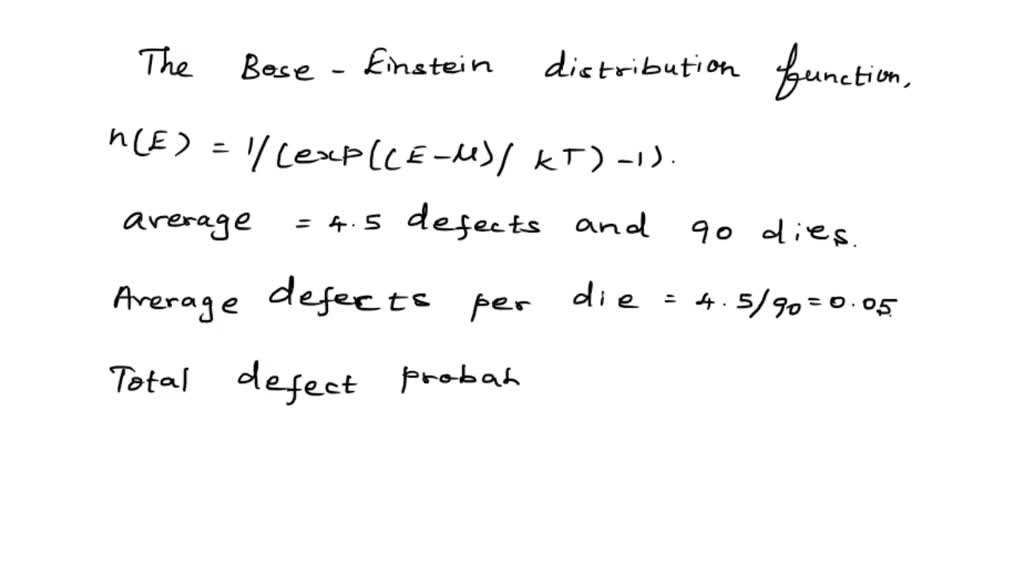 The Bose - Einstein distribution function,
n(E) = 1/(exp((E-μ)/ kT) -1).
average = 4.5 defects and 90 dies.
Average defects per die = 4.5/90 = 0.05
Total defect probah